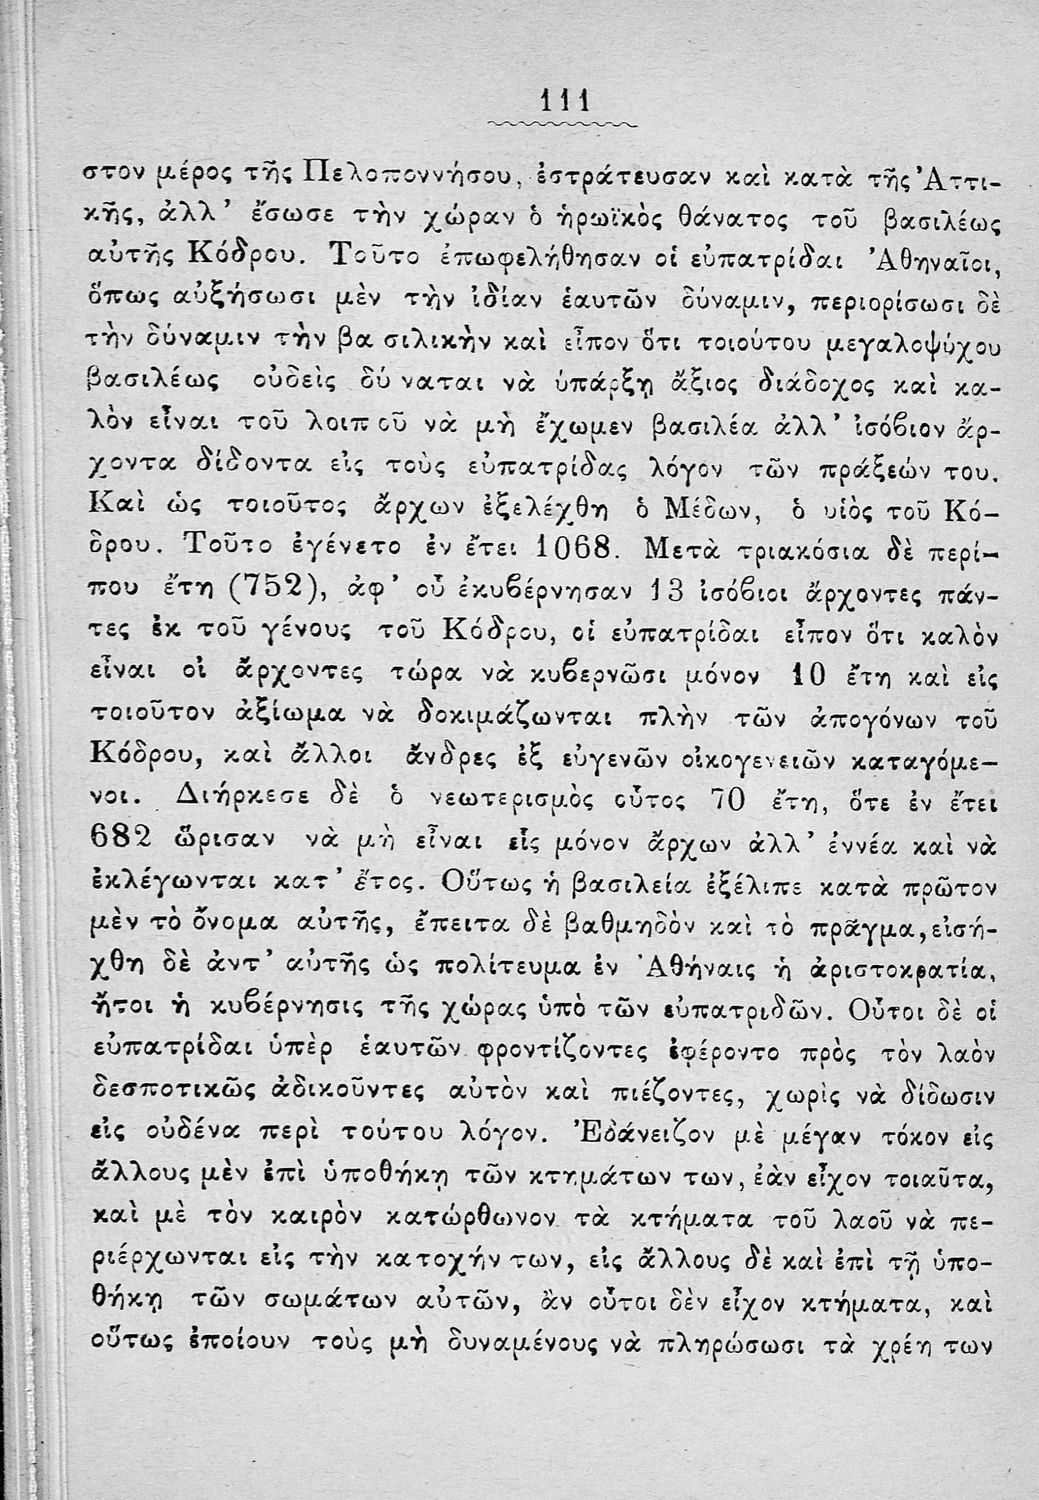 111
στον μέρος τῆς Πελοποννήσου, ἐστράτευσαν καὶ κατὰ τῆς Ἀττι-
κῆς, ἀλλ' ἔσωσε τὴν χώραν ὁ ἡρωϊκὸς θάνατος τοῦ βασιλέως
αὐτῆς Κόδρου. Τοῦτο ἐπωφελήθησαν οἱ εὐπατρίδαι Ἀθηναῖοι,
ὅπως αὐξήσωσι μὲν τὴν ἰδίαν ἑαυτῶν δύναμιν, περιορίσωσι δὲ
τὴν δύναμιν τὴν βα σιλικὴν καὶ εἶπον ὅτι τοιούτου μεγαλοψύχου
βασιλέως οὐδεὶς δύ ναται νὰ ὑπάρξῃ ἄξιος διάδοχος καὶ κα-
λὸν εἶναι τοῦ λοιποῦ νὰ μὴ ἔχωμεν βασιλέα ἀλλ' ἰσόβιον ἄρ-
χοντα δίδοντα εἰς τοὺς εὐπατρίδας λόγον τῶν πράξεών του.
Καὶ ὡς τοιοῦτος ἄρχων ἐξελέχθη ὁ Μέδων, ὁ υἱὸς τοῦ Κό-
δρου. Τοῦτο ἐγένετο ἐν ἔτει 1068. Μετὰ τριακόσια δὲ περί-
που ἔτη (752), ἀφ' οὗ ἐκυβέρνησαν 13 ἰσόβιοι ἄρχοντες πάν-
τες ἐκ τοῦ γένους τοῦ Κόδρου, οἱ εὐπατρίδαι εἶπον ὅτι καλὸν
εἶναι οἱ ἄρχοντες τώρα νὰ κυβερνῶσι μόνον 10 ἔτη καὶ εἰς
τοιοῦτον ἀξίωμα νὰ δοκιμάζωνται πλὴν τῶν ἀπογόνων τοῦ
Κόδρου, καὶ ἄλλοι ἄνδρες ἐξ εὐγενῶν οἰκογενειῶν καταγόμε-
νοι. Διήρκεσε δὲ ὁ νεωτερισμὸς οὗτος 70 ἔτη, ὅτε ἐν ἔτει
682 ὥρισαν νὰ μὴ εἶναι εἷς μόνον ἄρχων ἀλλ' ἐννέα καὶ νὰ
ἐκλέγωνται κατ' ἔτος. Οὕτως ἡ βασιλεία ἐξέλιπε κατὰ πρῶτον
μὲν τὸ ὄνομα αὐτῆς, ἔπειτα δὲ βαθμηδὸν καὶ τὸ πρᾶγμα, εἰσή-
χθη δὲ ἀντ' αὐτῆς ὡς πολίτευμα ἐν Ἀθήναις ἡ ἀριστοκρατία,
ἤτοι ἡ κυβέρνησις τῆς χώρας ὑπὸ τῶν εὐπατριδῶν. Οὗτοι δὲ οἱ
εὐπατρίδαι ὑπὲρ ἑαυτῶν φροντίζοντες ἐφέροντο πρὸς τὸν λαὸν
δεσποτικῶς ἀδικοῦντες αὐτὸν καὶ πιέζοντες, χωρὶς νὰ δίδωσιν
εἰς οὐδένα περὶ τούτου λόγον. Ἐδάνειζον μὲ μέγαν τόκον εἰς
ἄλλους μὲν ἐπὶ ὑποθήκῃ τῶν κτημάτων των, ἐὰν εἶχον τοιαῦτα,
καὶ μὲ τὸν καιρὸν κατώρθωνον τὰ κτήματα τοῦ λαοῦ νὰ πε-
ριέρχωνται εἰς τὴν κατοχήν των, εἰς ἄλλους δὲ καὶ ἐπὶ τῇ ὑπο-
θήκῃ τῶν σωμάτων αὐτῶν, ἂν οὗτοι δὲν εἶχον κτήματα, καὶ
οὕτως ἐποίουν τοὺς μὴ δυναμένους νὰ πληρώσωσι τὰ χρέη των